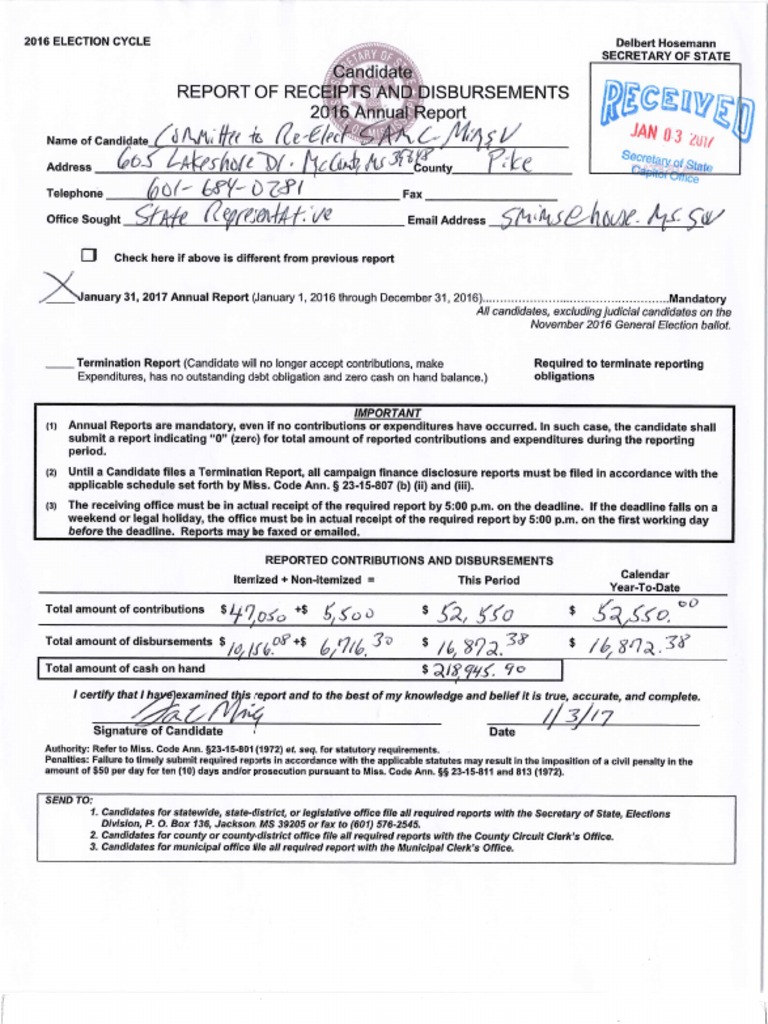 2016 ELECTION CYCLE
Delbert Hosemann
SECRETARY OF STATE
Candidate
REPORT OF RECEIPTS AND DISBURSEMENTS
2016 Annual Report
RECEIVED
JAN 03 2017
Secretary of State
Capitol Office
Name of Candidate Committee to Re-Elect SAM C. Mims V
Address 605 Lakeshore Dr. McComb, Ms 39648 County Pike
Telephone 601-684-0281 Fax
Office Sought State Representative Email Address smims@house.ms.gov
Check here if above is different from previous report
X January 31, 2017 Annual Report (January 1, 2016 through December 31, 2016)..........Mandatory
All candidates, excluding judicial candidates on the
November 2016 General Election ballot.
Termination Report (Candidate will no longer accept contributions, make Required to terminate reporting
Expenditures, has no outstanding debt obligation and zero cash on hand balance.) obligations
IMPORTANT
(1) Annual Reports are mandatory, even if no contributions or expenditures have occurred. In such case, the candidate shall
submit a report indicating "0" (zero) for total amount of reported contributions and expenditures during the reporting
period.
(2) Until a Candidate files a Termination Report, all campaign finance disclosure reports must be filed in accordance with the
applicable schedule set forth by Miss. Code Ann. § 23-15-807 (b) (ii) and (iii).
(3) The receiving office must be in actual receipt of the required report by 5:00 p.m. on the deadline. If the deadline falls on a
weekend or legal holiday, the office must be in actual receipt of the required report by 5:00 p.m. on the first working day
before the deadline. Reports may be faxed or emailed.
REPORTED CONTRIBUTIONS AND DISBURSEMENTS
Itemized + Non-itemized = This Period Calendar
Year-To-Date
Total amount of contributions $ 47,050 +$ 5,500 $ 52,550 $ 52,550.00
Total amount of disbursements $ 10,156.08 +$ 6,716.30 $ 16,872.38 $ 16,872.38
Total amount of cash on hand $ 218,945.90
I certify that I have examined this report and to the best of my knowledge and belief it is true, accurate, and complete.
1/3/17
Signature of Candidate Date
Authority: Refer to Miss. Code Ann. §23-15-801 (1972) et. seq. for statutory requirements.
Penalties: Failure to timely submit required reports in accordance with the applicable statutes may result in the imposition of a civil penalty in the
amount of $50 per day for ten (10) days and/or prosecution pursuant to Miss. Code Ann. §§ 23-15-811 and 813 (1972).
SEND TO:
1. Candidates for statewide, state-district, or legislative office file all required reports with the Secretary of State, Elections
Division, P. O. Box 136, Jackson MS 39205 or fax to (601) 576-2545.
2. Candidates for county or county-district office file all required reports with the County Circuit Clerk's Office.
3. Candidates for municipal office file all required report with the Municipal Clerk's Office.